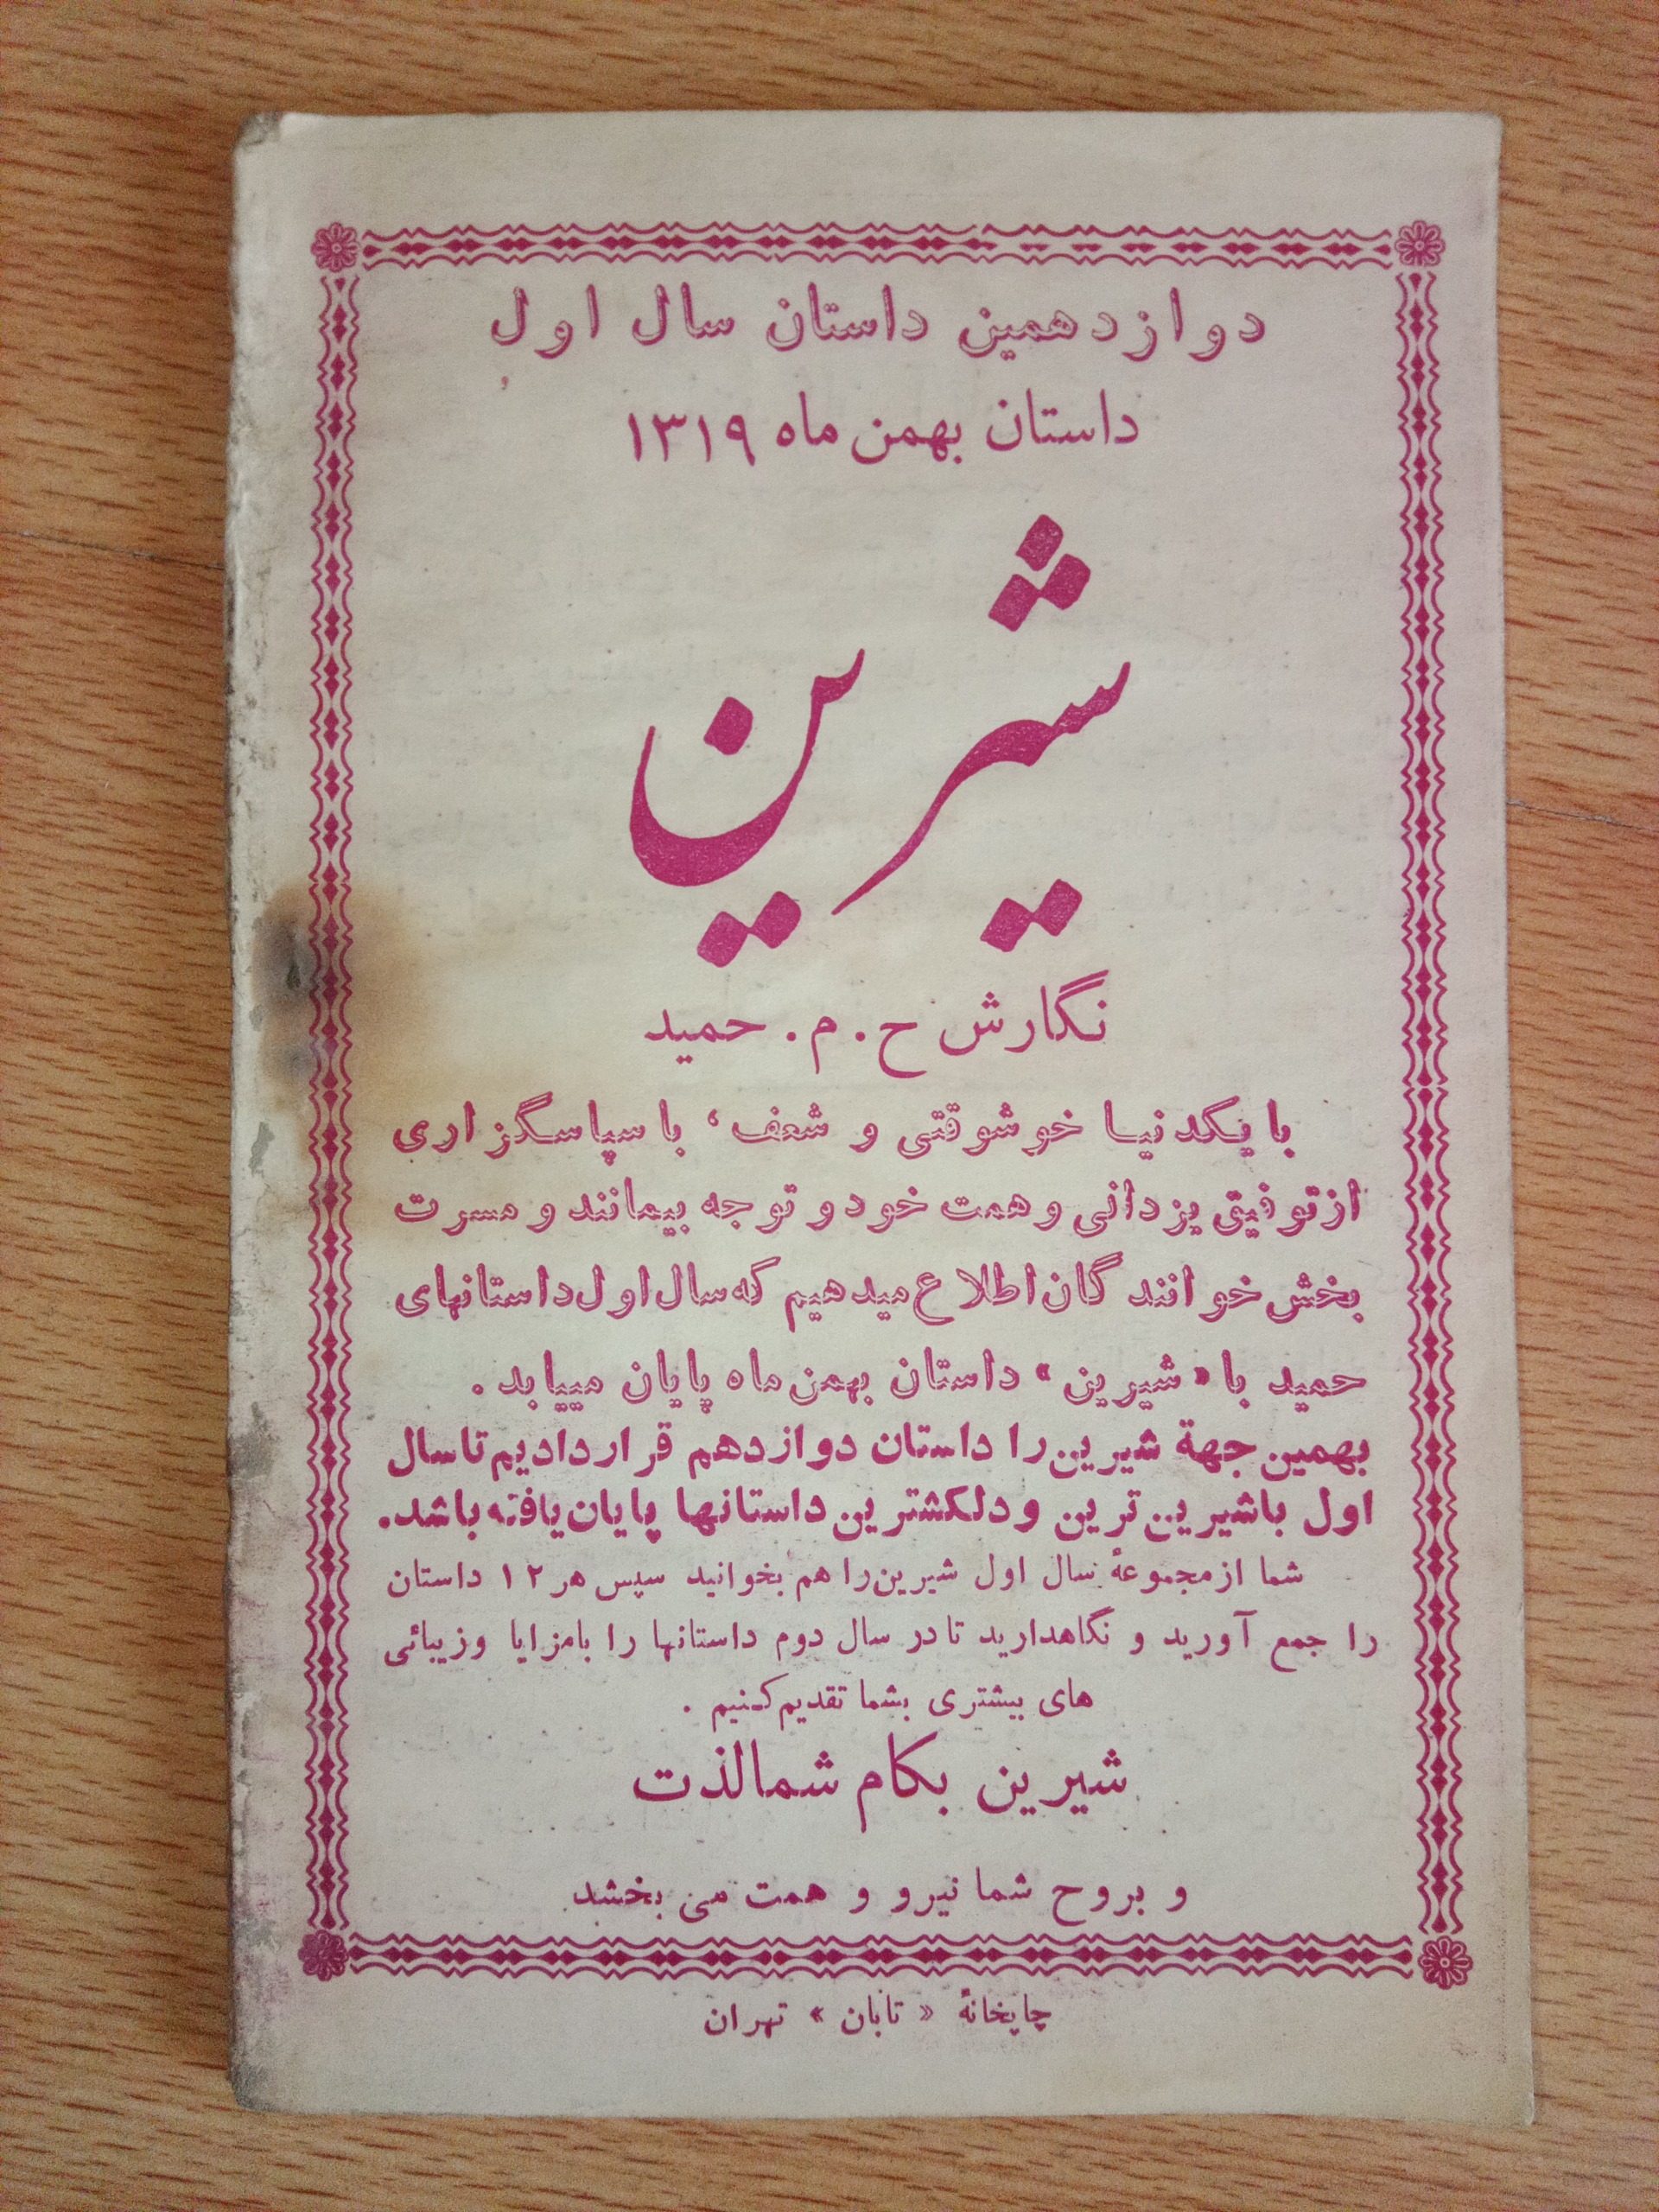 دوازدهمین داستان سال اول
داستان بهمن ماه ۱۳۱۹
شیرین
نگارش ح. م. حمید
با یکدنیا خوشوقتی و شعف، با سپاسگزاری
از توفیق یزدانی و همت خود و توجه بیمانند و مسرت
بخش خوانندگان اطلاع میدهیم که سال اول داستانهای
حمید با «شیرین» داستان بهمن ماه پایان مییابد.
بهمین جهة شیرین را داستان دوازدهم قرار دادیم تا سال
اول با شیرین ترین و دلکشترین داستانها پایان یافته باشد.
شما از مجموعهٔ سال اول شیرین را هم بخوانید سپس هر ۱۲ داستان
را جمع آورید و نگاهدارید تا در سال دوم داستانها را بامزایا و زیبائی
های بیشتری بشما تقدیم کنیم.
شیرین بکام شما لذت
و بروح شما نیرو و همت می بخشد
چاپخانهٔ «تابان» تهران